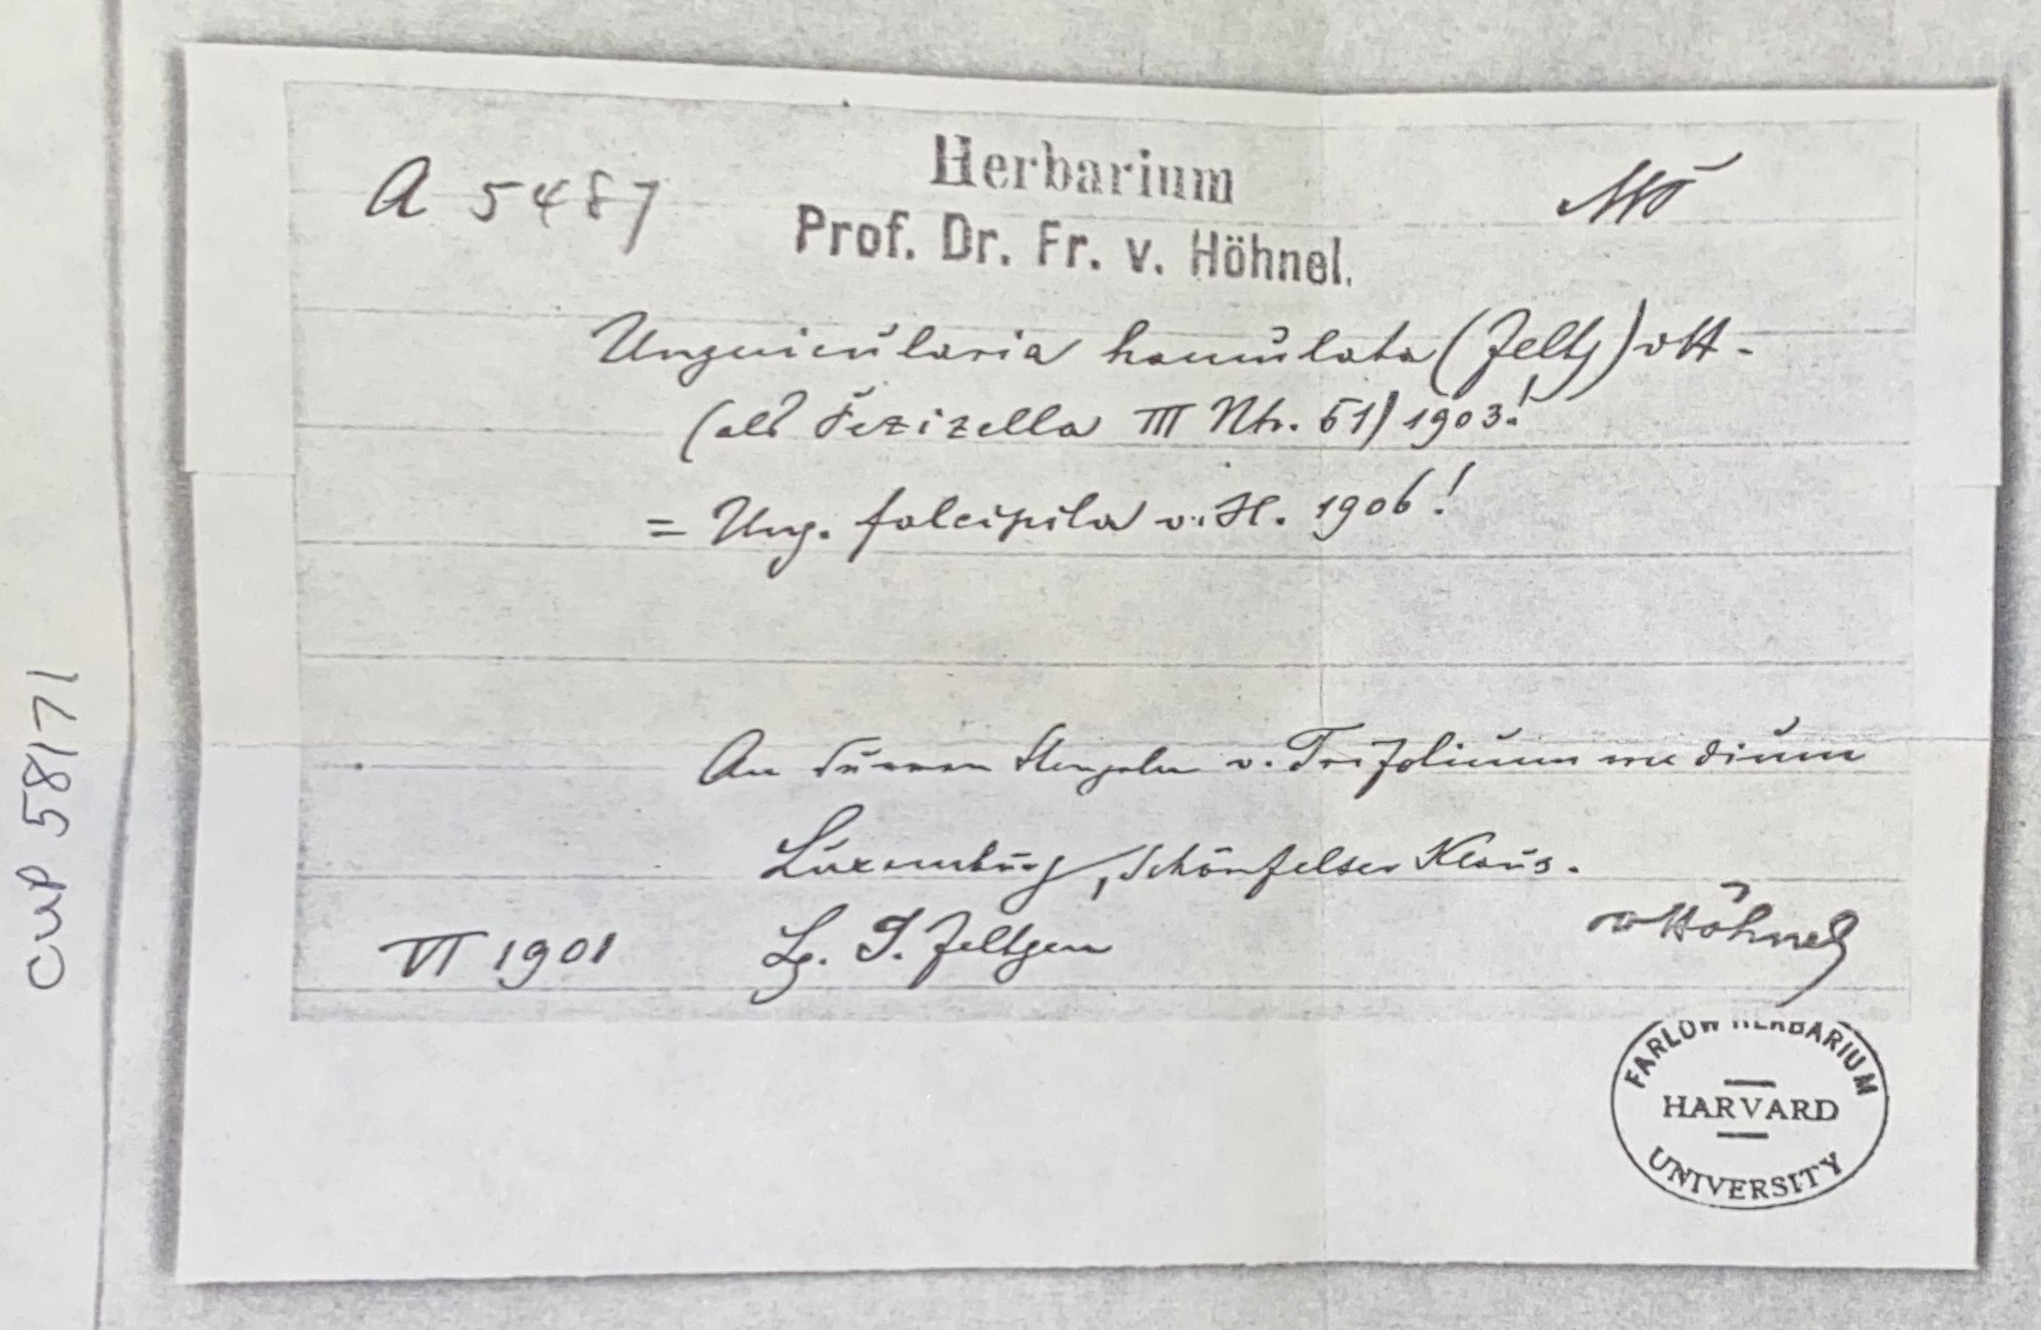 A 5487
Herbarium
Prof. Dr. Fr. v. Höhnel.
Unguicularia hamulata (Feltg) v H.
(als Pezizella III Ntr. 51) 1903!
= Ung. falcipila v. H. 1906!
An dürren Stengeln v. Trifolium medium
Luxemburg, Schönfelser Klaus.
VI 1901 Lg. J. Feltgen
v Höhnel
FARLOW HERBARIUM
HARVARD
UNIVERSITY
CUP 58171